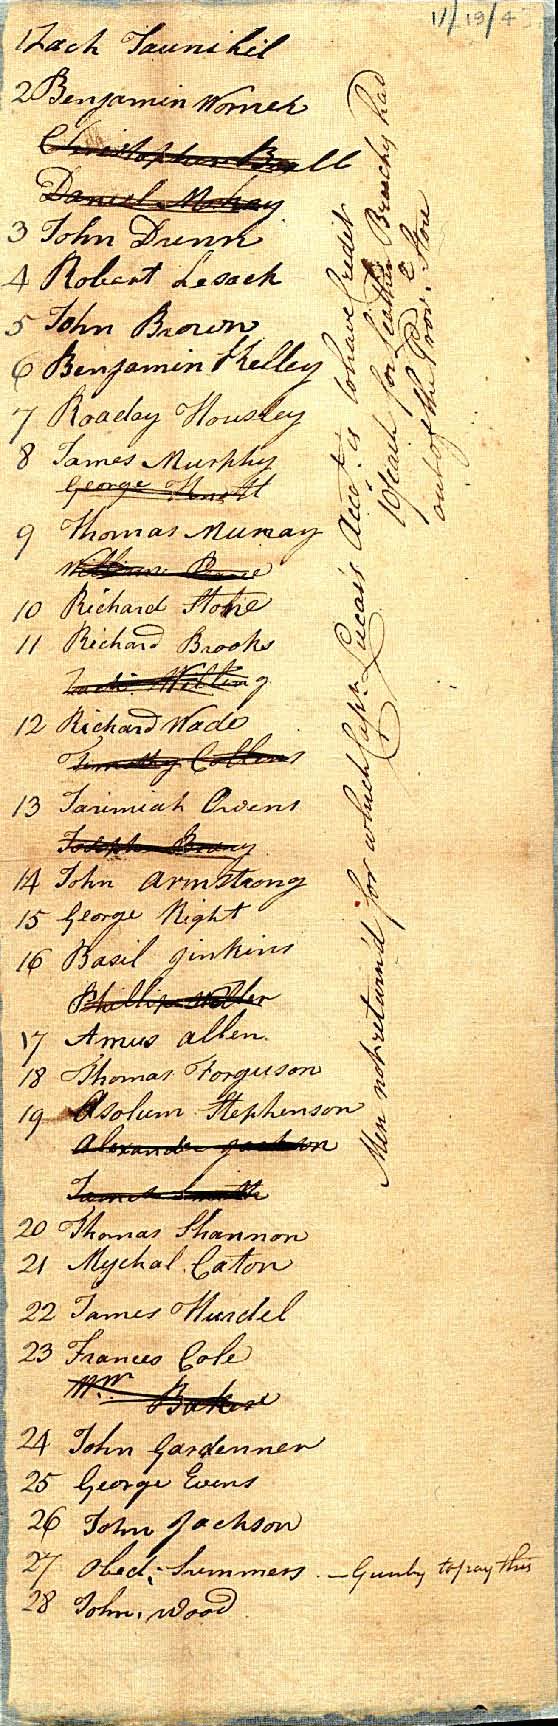 11/19/4
1 Zach Taunihil
2 Benjamin Worner
Christopher Beall
Daniel Mckay
3 John Dunn
4 Robert Lesack
5 John Brown
6 Benjamin Kelley
7 Roaday Housley
8 James Murphy
George
9 Thomas Murray
William
10 Richard Stone
11 Richard Brooks
Willing
12 Richard Wade
Timothy Collens
13 Jarimiah Owens
Joseph
14 John Armstrong
15 George Right
16 Basil Jinkins
Phillip Miller
17 Amus Allen
18 Thomas Forguson
19 Asolum Stephenson
Alexander Jackson
James Smith
20 Thomas Shannon
21 Mychal Caton
22 James Hurdel
23 Frances Cole
Wm. Baker
24 John Gardenner
25 George Evens
26 John Jackson
27 Obed: Summers — Gunby to pay this
28 John Wood
Men not return'd for which Capn. Lucas's Acct. is to have Credit
for Leather Breechs had
out of the Prov. Store